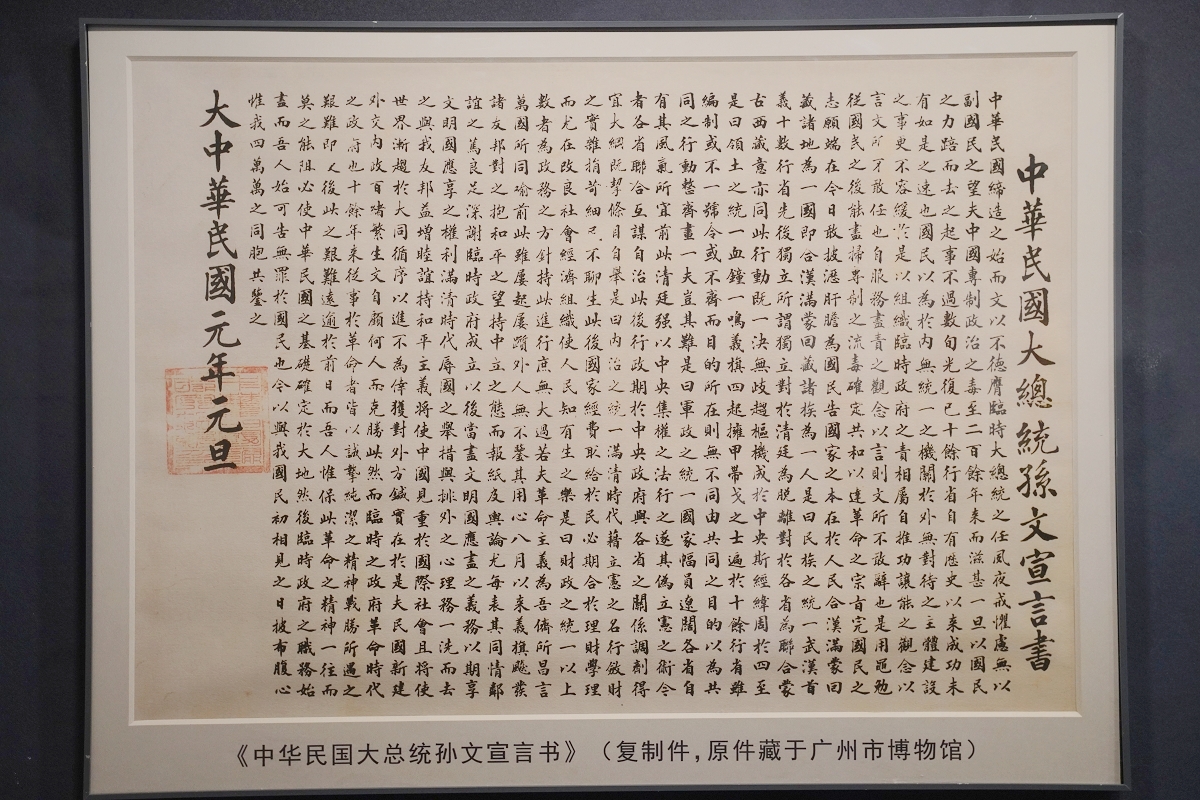 中華民國大總統孫文宣言書
中華民國締造之始而文以不德膺臨時大總統之任夙夜戒懼慮無以
副國民之望夫中國專制政治之毒至二百餘年來而滋甚一旦以國民
之力踣而去之起事不過數旬光復已十餘行省自有歷史以來成功未
有如是之速也國民以為於內無統一之機關於外無對待之主體建設
之事更不容緩於是以組織臨時政府之責相屬自推功讓能之觀念以
言文所不敢任也自服務盡責之觀念以言則文所不敢辭也是用黽勉
從國民之後能盡掃專制之流毒確定共和以達革命之宗旨完國民之
志願端在今日敢披瀝肝膽為國民告國家之本在於人民合漢滿蒙回
藏諸地為一國即合漢滿蒙回藏諸族為一人是曰民族之統一武漢首
義十數行省先後獨立所謂獨立對於清廷為脫離對於各省為聯合蒙
古西藏意亦同此行動既一決無歧趨樞機成於中央斯經緯周於四至
是曰領土之統一血鐘一鳴義旗四起擁甲帶戈之士遍於十餘行省雖
編制或不一號令或不齊而目的所在則無不同由共同之目的以為共
同之行動整齊畫一夫豈其難是曰軍政之統一國家幅員遼闊各省自
有其風氣所宜前此清廷强以中央集權之法行之遂其偽立憲之術今
者各省聯合互謀自治此後行政期於中央政府與各省之關係調劑得
宜大綱既挈條目自舉是曰內治之統一滿清時代藉立憲之名行斂財
之實雜捐苛細民不聊生此後國家經費取給於民必期合於理財學理
而尤在改良社會經濟組織使人民知有生之樂是曰財政之統一以上
數者為政務之方針持此進行庶無大過若夫革命主義為吾儕所昌言
萬國所同喻前此雖屢起屢躓外人無不鑒其用心八月以來義旗飈發
諸友邦對之抱和平之望持中立之態而報紙及輿論尤每表其同情鄰
誼之篤良足深謝臨時政府成立以後當盡文明國應盡之義務以期享
文明國應享之權利滿清時代辱國之舉措與排外之心理務一洗而去
之與我友邦益增睦誼持和平主義將使中國見重於國際社會且將使
世界漸趨於大同循序以進不為倖獲對外方鍼實在於是夫民國新建
外交內政百緒繁生文自顧何人而克勝此然而臨時之政府革命時代
之政府也十餘年來從事於革命者皆以誠摯純潔之精神戰勝所遇之
艱難即後此之艱難遠逾於前日而吾人惟保此革命之精神一往而
莫之能阻必使中華民國之基礎確定於大地然後臨時政府之職務始
盡而吾人始可告無罪於國民也今以與我國民初相見之日披布腹心
惟我四萬萬之同胞共鑒之
大中華民國元年元旦
《中华民国大总统孙文宣言书》（复制件，原件藏于广州市博物馆）